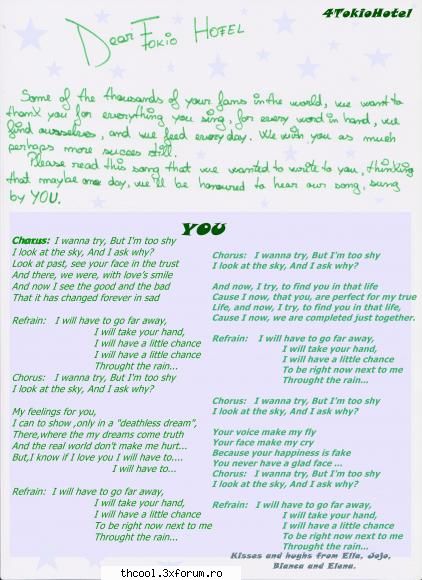 4TokioHotel
Dear Tokio Hotel
Some of the thousands of your fans in the world, we want to
thank you for everything you sing, for every word in hand, we
find ourselves, and we feed every day. We wish you as much
perhaps more succes still.
Please read this song that we wanted to write to you, thinking
that maybe one day, we'll be honoured to hear our song, sung
by YOU.
YOU
Chorus: I wanna try, But I'm too shy
I look at the sky, And I ask why?
Look at past, see your face in the trust
And there, we were, with love's smile
And now I see the good and the bad
That it has changed forever in sad
Refrain: I will have to go far away,
I will take your hand,
I will have a little chance
I will have a little chance
Throught the rain...
Chorus: I wanna try, But I'm too shy
I look at the sky, And I ask why?
My feelings for you,
I can to show ,only in a "deathless dream",
There,where the my dreams come truth
And the real world don't make me hurt...
But,I know if I love you I will have to....
I will have to...
Refrain: I will have to go far away,
I will take your hand,
I will have a little chance
To be right now next to me
Throught the rain...
Chorus: I wanna try, But I'm too shy
I look at the sky, And I ask why?
And now, I try, to find you in that life
Cause I now, that you, are perfect for my true
Life, and now, I try, to find you in that life,
Cause I now, we are completed just together.
Refrain: I will have to go far away,
I will take your hand,
I will have a little chance
To be right now next to me
Throught the rain...
Chorus: I wanna try, But I'm too shy
I look at the sky, And I ask why?
Your voice make my fly
Your face make my cry
Because your happiness is fake
You never have a glad face ...
Chorus: I wanna try, But I'm too shy
I look at the sky, And I ask why?
Refrain: I will have to go far away,
I will take your hand,
I will have a little chance
To be right now next to me
Throught the rain...
Kisses and hughs from Ella, Jojo,
Bianca and Elena.
thcool.3xforum.ro